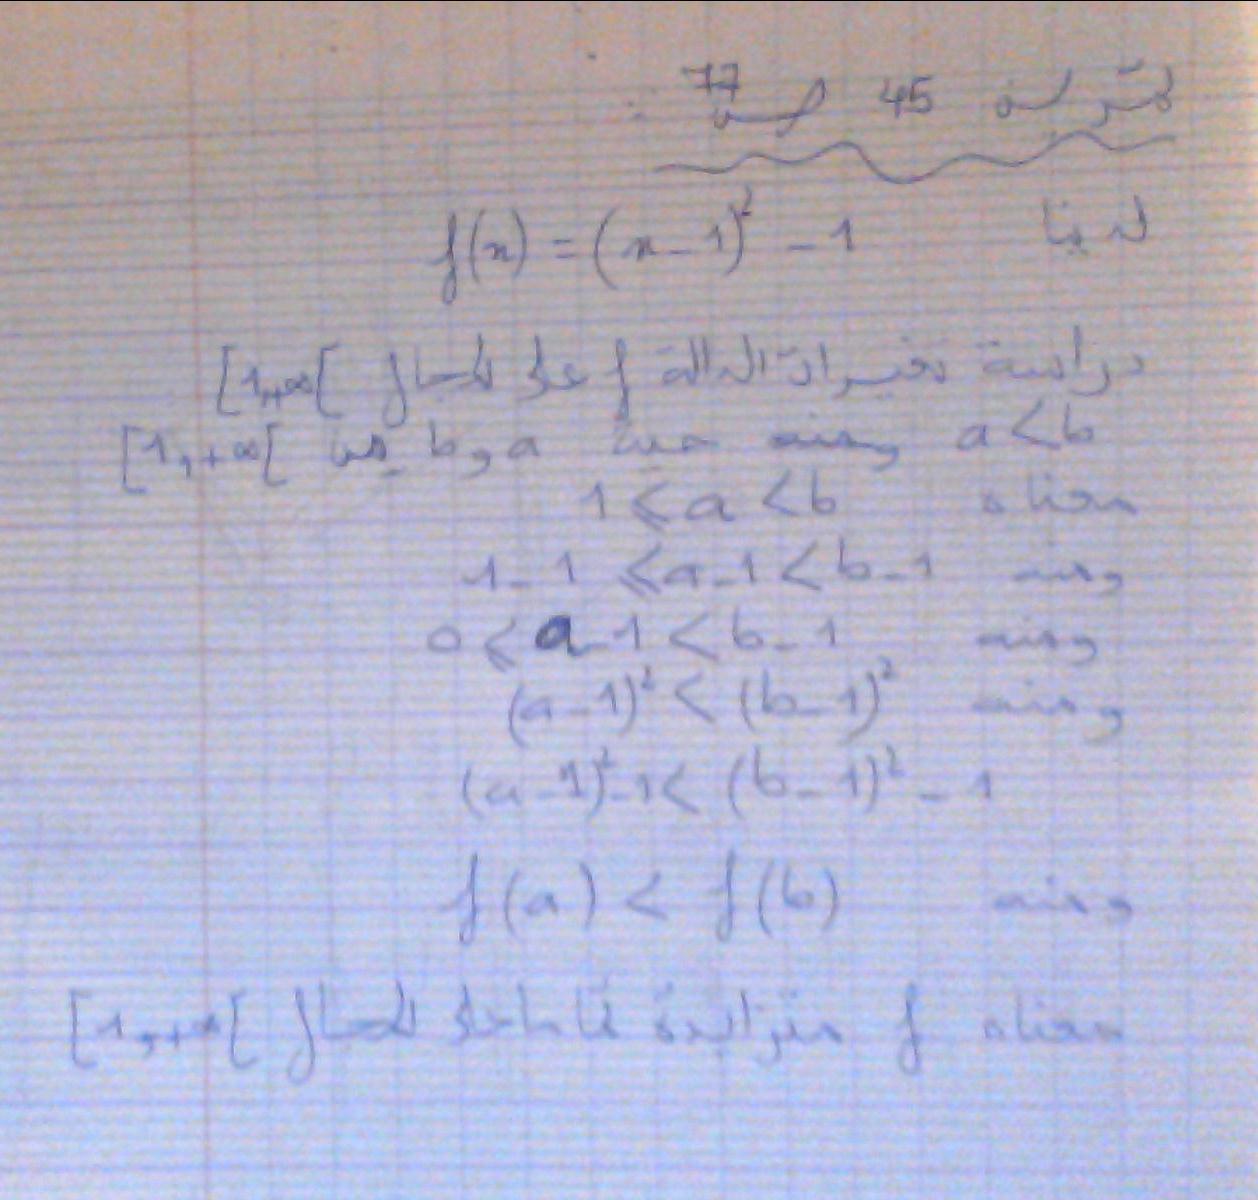 تمرين 45 ص 77 :
لدينا f(x) = (x-1)² - 1
دراسة تغيرات الدالة f على المجال [1,+∞[
a<b ومنه حيث a و b من [1,+∞[
معناه 1 ⩽ a < b
ومنه 1-1 ⩽ a-1 < b-1
ومنه 0 ⩽ a-1 < b-1
ومنه (a-1)² < (b-1)²
(a-1)²-1 < (b-1)² - 1
ومنه f(a) < f(b)
معناه f متزايدة تماما على المجال [1,+∞[